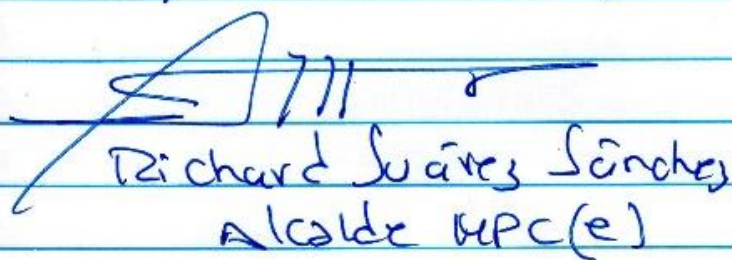 Richard Suárez Sánchez
Alcalde MPC(e)